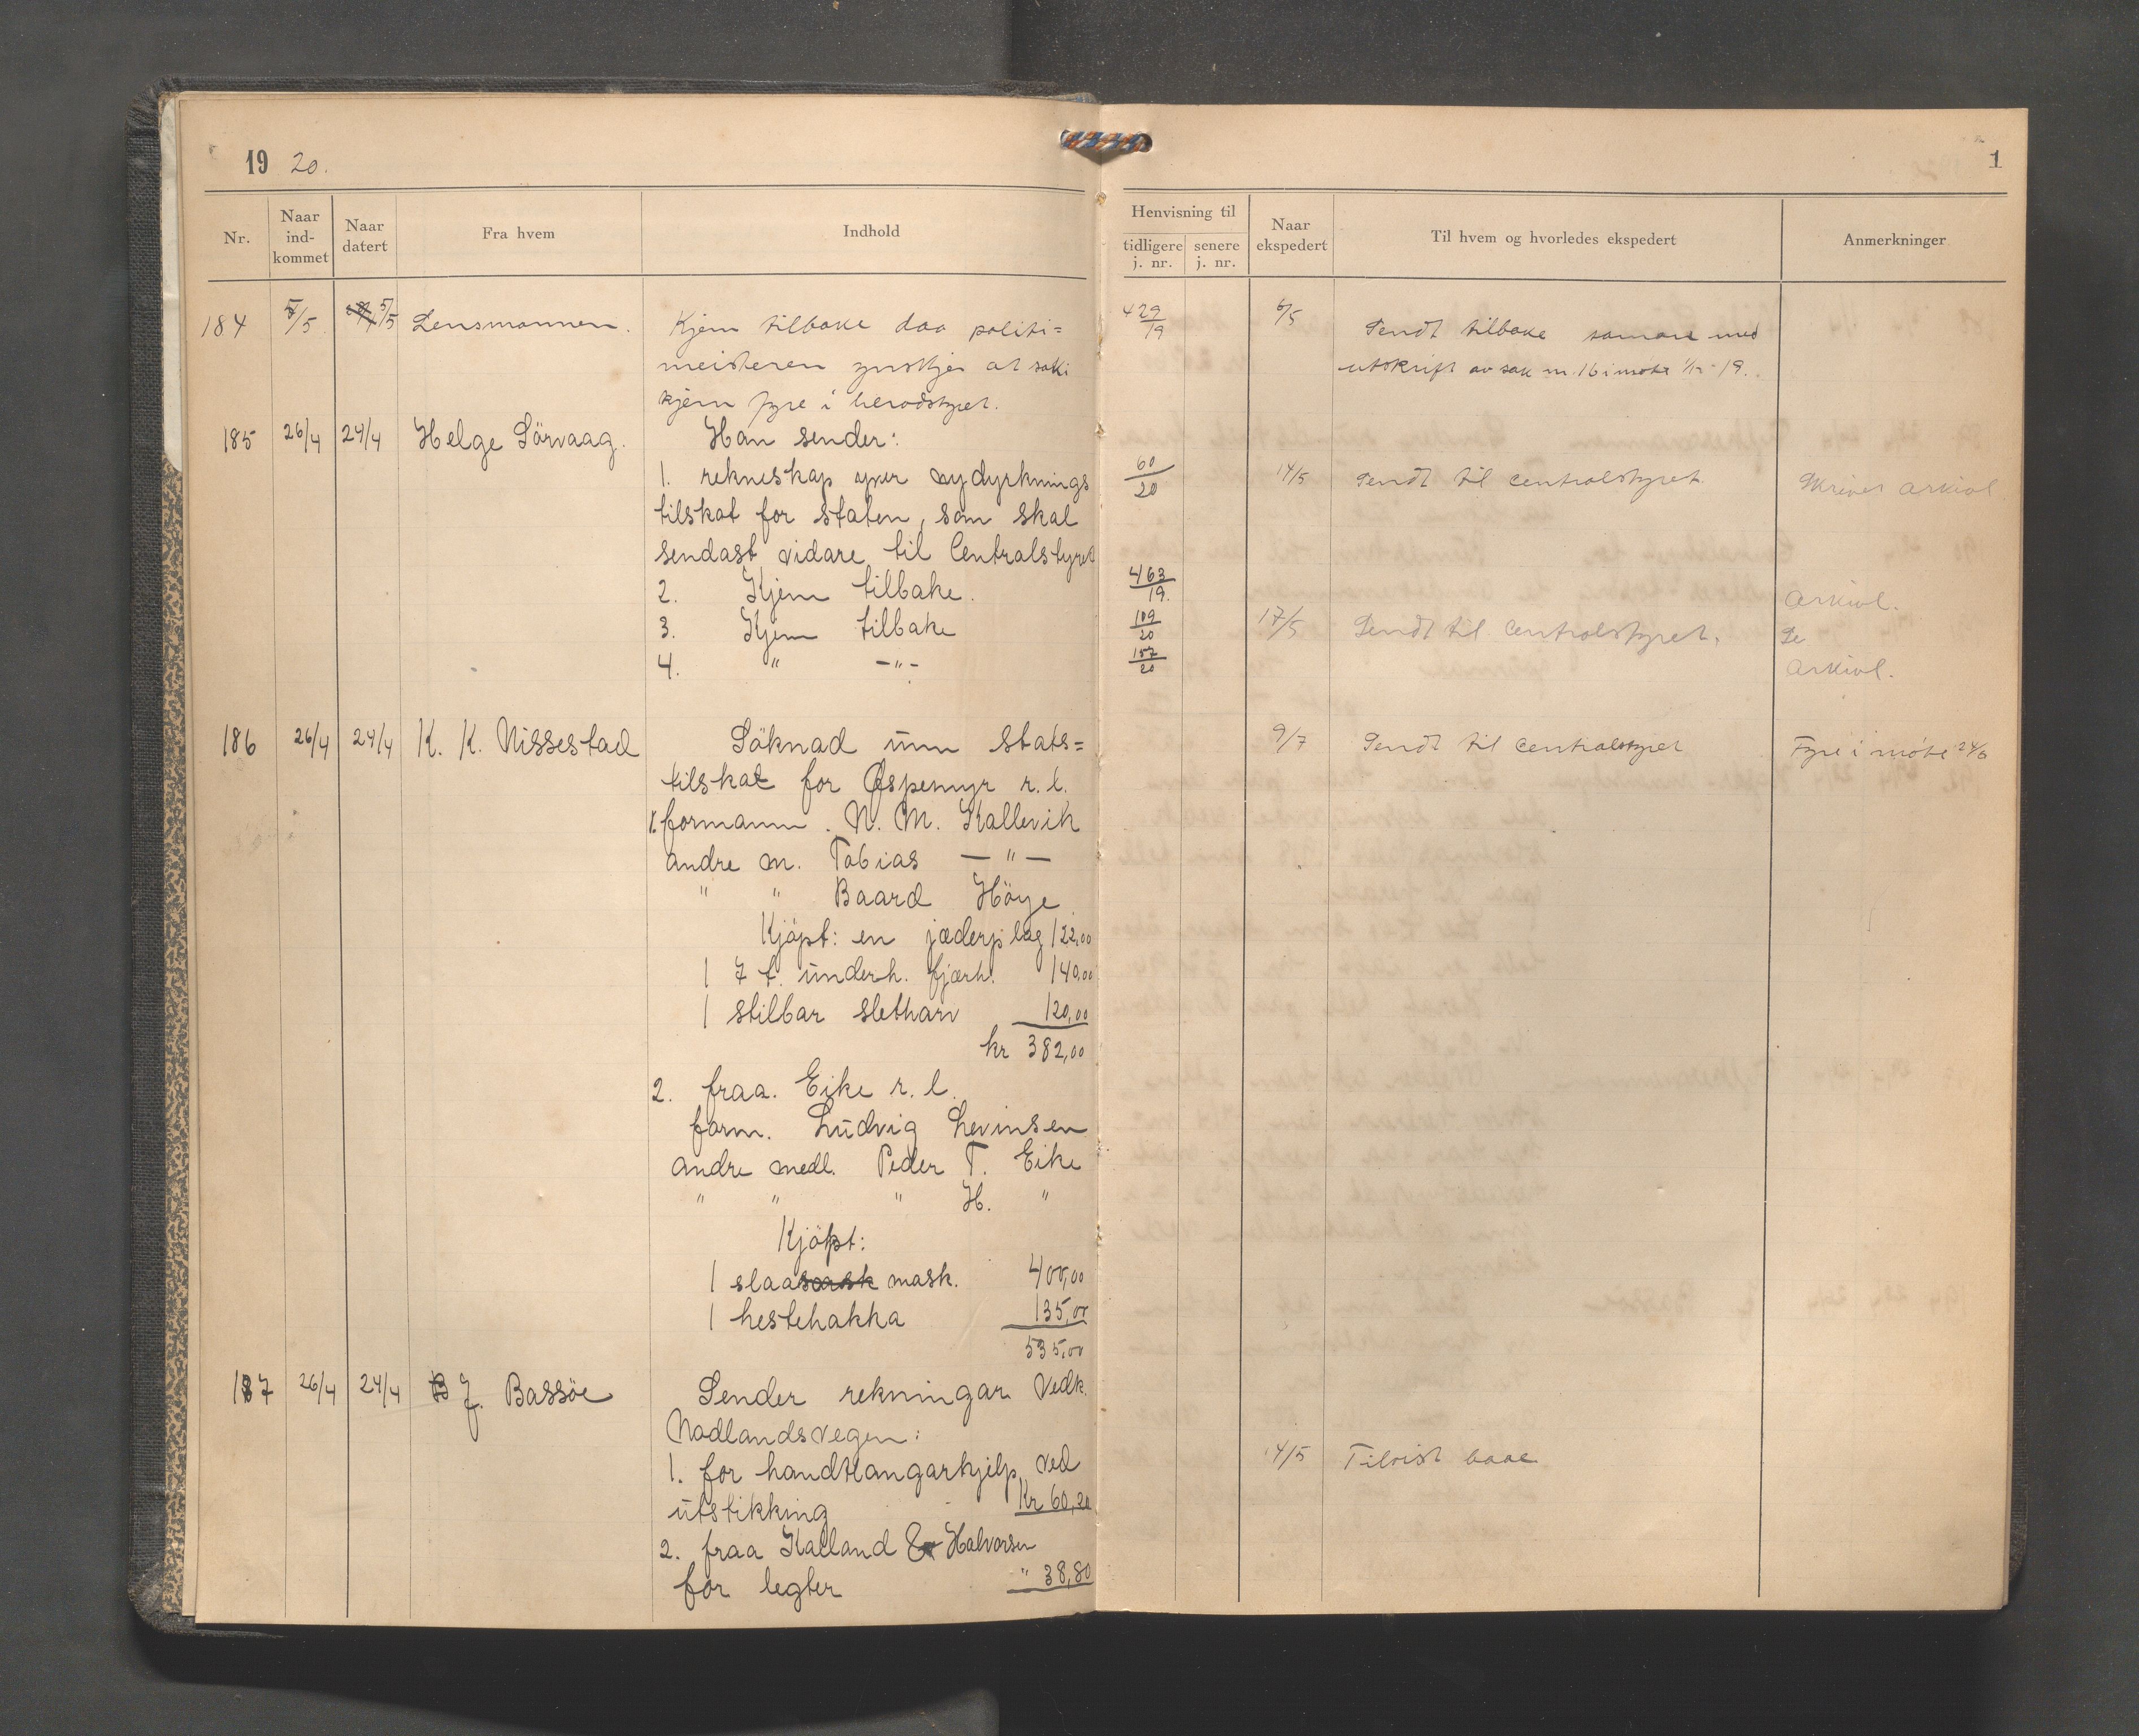 19 20.
Nr.
Naar ind-kommet
Naar datert
Fra hvem
Indhold
184 5/5 5/5 Lensmannen. Kjem tilbake daa politi=
meisteren ynskjer at saki
kjem fyre i heradstyret.
185 26/4 24/4 Helge Sörvaag. Han sender:
1. rekneskap yver nydyrknings
tilskot for staten, som skal
sendast vidare til Centralstyret
2. Kjem tilbake.
3. Kjem tilbake
4. " -"-
186 26/4 24/4 K. K. Nissestad Söknad um stats=
tilskot for Ospemyr r.l.
1. formann. N. M. Kallevik
andre m. Tobias — " —
" " Baard Höye
Kjöpt: en jæderplog 122,00
1 7 t. underh. fjærh. 140,00
1 stilbar sletharv 120,00
kr 382,00
2. fraa. Eike r. l.
form. Ludvig Levinsen
andre medl. Peder T. Eike
" " " H. "
Kjöpt:
1 slaa mask. 400,00
1 hestehakka 135,00
535,00
187 26/4 24/4 J. Bassöe Sender rekningar vedk.
Nodlandsvegen:
1. for handtlangarhjelp ved
utstikking Kr 60,20
2. fraa Kalland & Halvorsen
for legter " 38,80
1
Henvisning til
tidligere j. nr.
senere j. nr.
Naar ekspedert
Til hvem og hvorledes ekspedert
Anmerkninger
429/19 6/5 Sendt tilbake saman med
utskrift av sak nr. 16 i møte 1/12-19.
60/20 14/5 Sendt til centralstyret. Skrives arkivl.
463/19. Arkivl.
109/20 17/5 Sendt til centralstyret. Se
157/20 Arkivl.
9/7 Sendt til centralstyret Fyre i møte 24/6
14/5 Tilvist